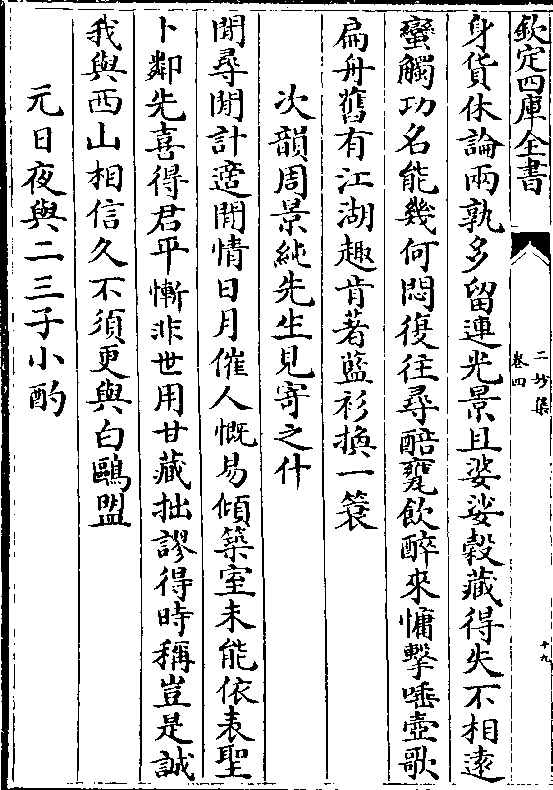 欽定四庫全書
二妙集
卷四
十九
身貨休論兩孰多留連光景且婆娑穀藏得失不相遠
蠻觸功名能幾何悶復往尋醅甕飲醉來慵擊唾壺歌
扁舟舊有江湖趣肯著藍衫換一簑
次韻周景純先生見寄之什
閒尋閒計遣閒情日月催人慨易傾築室未能依表聖
卜鄰先喜得君平慚非世用甘藏拙謬得時稱豈是誠
我與西山相信久不須更與白鷗盟
元日夜與二三子小酌